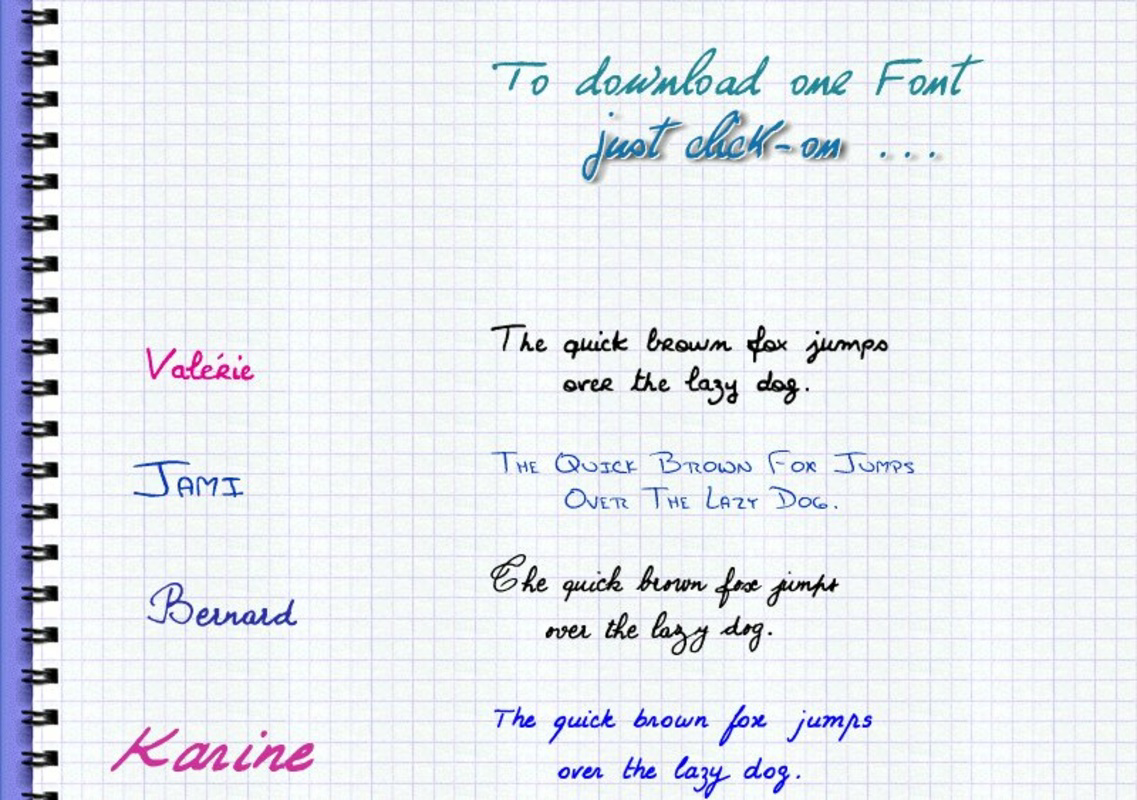 To download one Font
just click-on ...
Valérie
The quick brown fox jumps
over the lazy dog.
JAMI
THE QUICK BROWN FOX JUMPS
OVER THE LAZY DOG.
Bernard
The quick brown fox jumps
over the lazy dog.
Karine
The quick brown fox jumps
over the lazy dog.